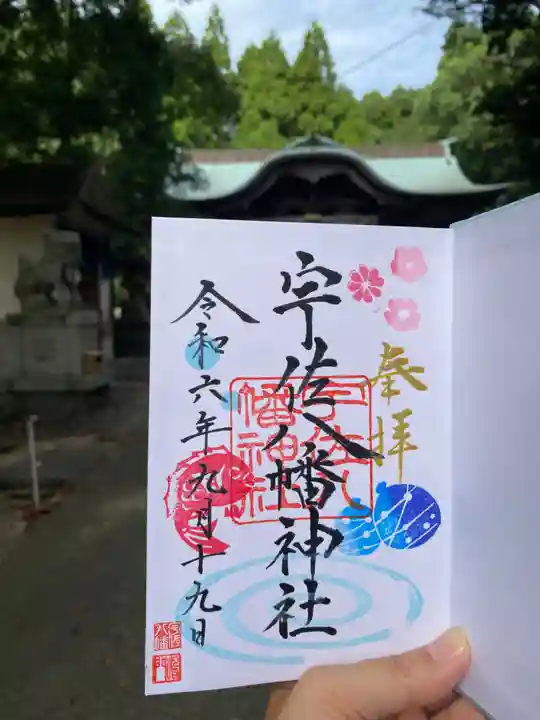 奉拝
宇佐八幡神社
宇佐八
幡神社
令和六年九月十九日